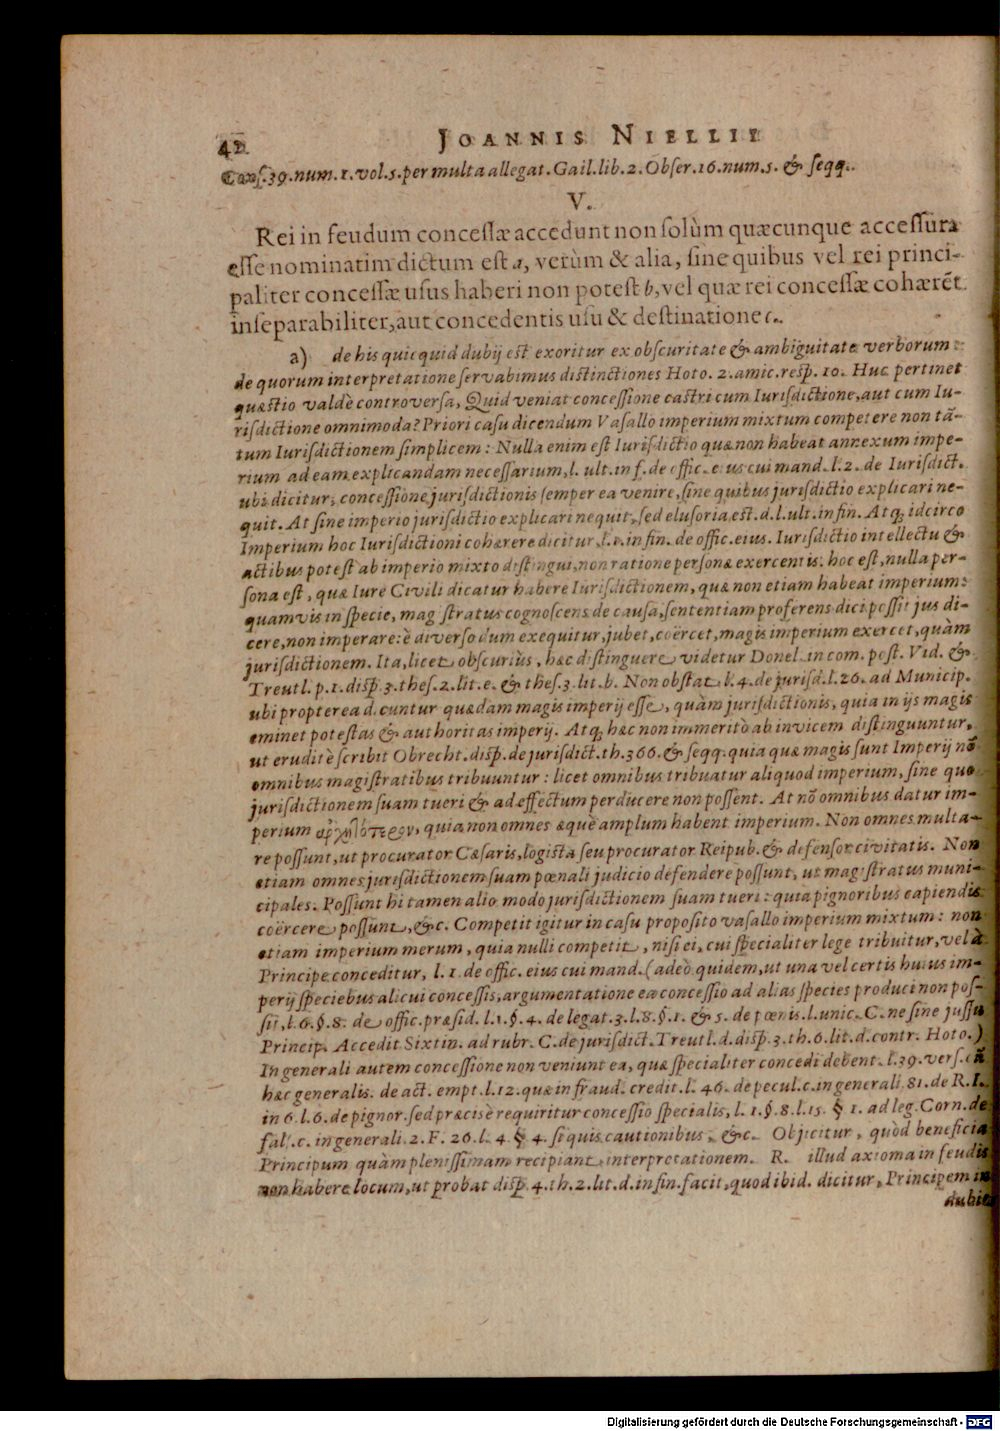 42 JOANNIS NIELLII
Conſ. 39. num. 1. vol. 5. per multa allegat. Gail. lib. 2. Obſer. 16. num. 5. & ſeqq.
V.
Rei in feudum conceſſæ accedunt non ſolùm quæcunque acceſſura
eſſe nominatim dictum eſt a, verùm & alia, ſine quibus vel rei princi-
paliter conceſſæ uſus haberi non poteſt b, vel quæ rei conceſſæ cohærēt
inſeparabiliter, aut concedentis uſu & deſtinatione c.
a) de his quicquid dubij eſt exoritur ex obſcuritate & ambiguitate verborum:
de quorum interpretatione ſervabimus diſtinctiones Hoto. 2. amic. reſp. 10. Huc pertinet
quæſtio valdè controverſa, Quid veniat conceſſione caſtri cum Iurisdictione, aut cum Iu-
riſdictione omnimoda? Priori caſu dicendum Vaſallo imperium mixtum competere non tā-
tum Iuriſdictionem ſimplicem: Nulla enim eſt Iuriſdictio quæ non habeat annexum impe-
rium ad eam explicandam neceſſarium, l. ult. in f. de offic. ejus cui mand. l. 2. de Iuriſdict.
ubi dicitur, conceſſione juriſdictionis ſemper ea venire, ſine quibus juriſdictio explicari ne-
quit. At ſine imperio juriſdictio explicari nequit, ſed eluſoria eſt. d. l. ult. in fin. Atq; idcirco
Imperium hoc Iuriſdictioni cohærere dicitur, l. 1. in fin. de offic. eius. Iurisdictio intellectu &
actibus poteſt ab imperio mixto diſtingui, non ratione perſonæ exercentis: hoc eſt, nulla per-
ſona eſt, quæ Iure Civili dicatur habere Iuriſdictionem, quæ non etiam habeat imperium:
quamvis in ſpecie, magiſtratus cognoſcens de cauſa, ſententiam proferens dici poſſit jus di-
cere, non imperare: è diverſo dum exequitur, jubet, coërcet, magis imperium exercet, quàm
jurisdictionem. Ita, licet obſcuriùs, hæc diſtinguere videtur Donel. in com. poſt. Vid. &
Treutl. p. 1. diſp. 3. theſ. 2. lit. e. & theſ. 3. lit. b. Non obſtat l. 4. de juriſd. l. 26. ad Municip.
ubi propterea dicuntur quædam magis imperij eſſe, quàm jurisdictionis, quia in ijs magis
eminet poteſtas & authoritas imperij. Atq; hæc non immeritò ab invicem diſtinguuntur,
ut eruditè ſcribit Obrecht. diſp. de jurisdict. th. 366. & ſeqq. quia quæ magis ſunt Imperij nō
omnibus magiſtratibus tribuuntur: licet omnibus tribuatur aliquod imperium, ſine quo
jurisdictionem ſuam tueri & ad effectum perducere non poſſent. At nō omnibus datur im-
perium, quia non omnes æquè amplum habent imperium. Non omnes multa-
re poſſunt, ut procurator Cæſaris, logiſta ſeu procurator Reipub. & defenſor civitatis. Non
etiam omnes jurisdictionem ſuam pœnali judicio defendere poſſunt, ut magiſtratus muni-
cipales. Poſſunt hi tamen alio modo jurisdictionem ſuam tueri: quia pignoribus capiendis
coërcere poſſunt, &c. Competit igitur in caſu propoſito vaſallo imperium mixtum: non
etiam imperium merum, quia nulli competit, niſi ei, cui ſpecialiter lege tribuitur, vel à
Principe conceditur, l. 1. de offic. eius cui mand. (adeò quidem, ut una vel certis huius im-
perij ſpeciebus alicui conceſſis, argumentatione ea conceſſio ad alias ſpecies produci non poſ-
ſit, l. 6. §. 8. de offic. præſid. l. 1. §. 4. de legat. 3. l. 8. §. 1. & 5. de pœnis. l. unic. C. ne ſine juſſu
Princip. Accedit Sixtin. ad rubr. C. de juriſdict. Treutl. d. diſp. 3. th. 6. lit. d. contr. Hoto.)
In generali autem conceſſione non veniunt ea, quæ ſpecialiter concedi debent. l. 39. verſ. cū
hæc generalis. de act. empt. l. 12. quæ in fraud. credit. l. 46. de pecul. c. in generali 81. de R. I.
in 6. l. 6. de pignor. ſed præcisè requiritur conceſſio ſpecialis, l. 1. §. 8. l. 15. § 1. ad leg. Corn. de
falſ. c. in generali. 2. F. 26. l. 4. § 4. ſi quis cautionibus, &c. Objicitur, quòd beneficia
Principum quàm pleniſſimam recipiant interpretationem. R. illud axioma in feudis
non habere locum, ut probat diſp. 4. th. 2. lit. d. in fin. facit, quod ibid. dicitur, Principem in
dubio
Digitalisierung gefördert durch die Deutsche Forschungsgemeinschaft - DFG